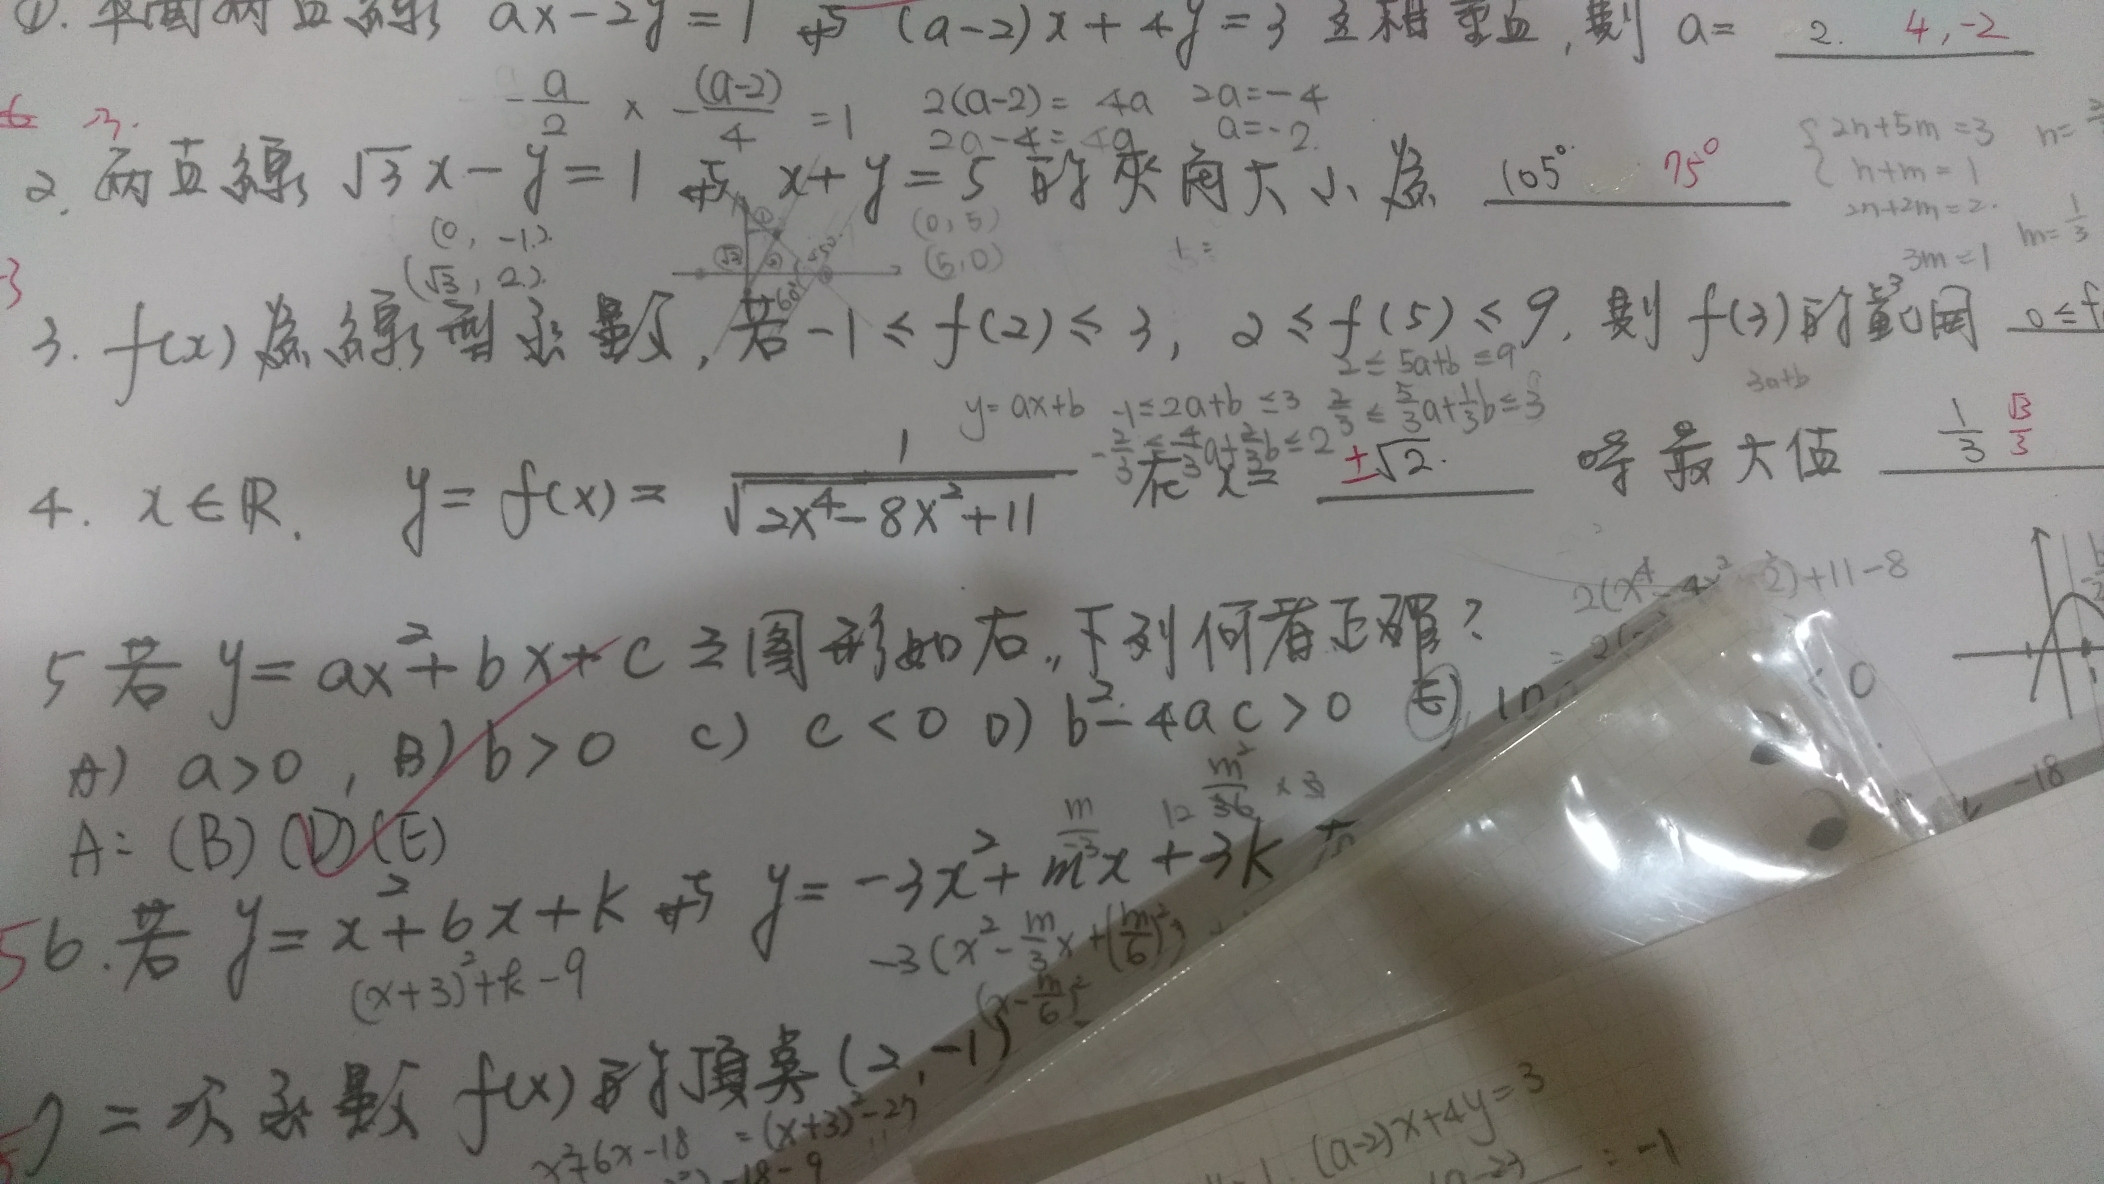 ①. 平面兩直線 ax-2y=1 與 (a-2)x+4y=3 互相垂直, 則 a= 2. 4,-2
-a/2 × -(a-2)/4 =1 2(a-2)=4a 2a=-4
2a-4=4a a=-2.
2. 兩直線 √3x-y=1 與 x+y=5 的夾角大小為 105° 75°
{2n+5m=3
n+m=1
2n+2m=2.
3m=1 m=1/3
(0,-1). (0,5)
(√3,2). (5,0)
-3
3. f(x)為線型函數, 若-1≤f(2)≤3, 2≤f(5)≤9, 則f(3)的範圍 0≤f
2≤5a+b≤9
y=ax+b -1≤2a+b≤3 2/3≤5/3a+1/3b≤3 3a+b
-2/3≤4/3a+2/3b≤2
4. x∈R, y=f(x)=1/√(2x⁴-8x²+11) 在x= ±√2. 時最大值 1/3 √3/3
+11-8
5 若 y=ax²+bx+c 之圖形如右,下列何者正確?
A) a>0, B) b>0 C) c<0 D) b²-4ac>0 E) <0
A: (B)(D)(E)
m/-3 12 m²/36 ×3 -18
6. 若 y=x²+6x+k 與 y=-3x²+mx+3k
(x+3)²+k-9 -3(x²-m/3x+(m/6)²)
(x-m/6)²
7 二次函數 f(x)的頂點(2,-1)
x²+6x-18 =(x+3)²-27
-18-9
(a-2)x+4y=3
=-1